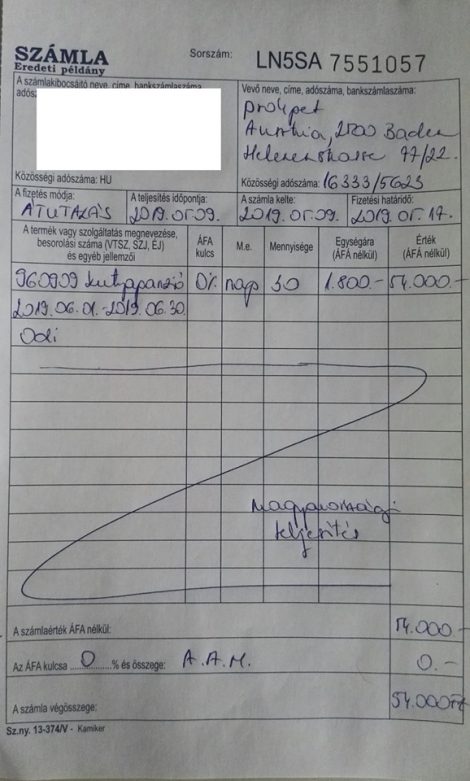 SZÁMLA
Eredeti példány
Sorszám: LN5SA 7551057
A számlakibocsátó neve, címe, bankszámlaszáma
adósz
Vevő neve, címe, adószáma, bankszámlaszáma:
pro4pet
Austria, 2500 Baden
Helenenstrasse 77/22.
Közösségi adószáma: HU
Közösségi adószáma: 16333/5623
A fizetés módja:
ÁTUTALÁS
A teljesítés időpontja:
2019.05.09.
A számla kelte:
2019.05.09.
Fizetési határidő:
2019.05.17.
A termék vagy szolgáltatás megnevezése, besorolási száma (VTSZ, SZJ, ÉJ) és egyéb jellemzői
ÁFA kulcs
M.e.
Mennyisége
Egységára (ÁFA nélkül)
Érték (ÁFA nélkül)
960909 kutyapanzió 0% nap 30 1.800.- 54.000.-
2019.06.01-2019.06.30.
Odi
Magyarországi
teljesítés
A számlaérték ÁFA nélkül: 54.000.-
Az ÁFA kulcsa 0 % és összege: A.A.M. 0.-
A számla végösszege: 54.000 Ft
Sz.ny. 13-374/V - Kamiker